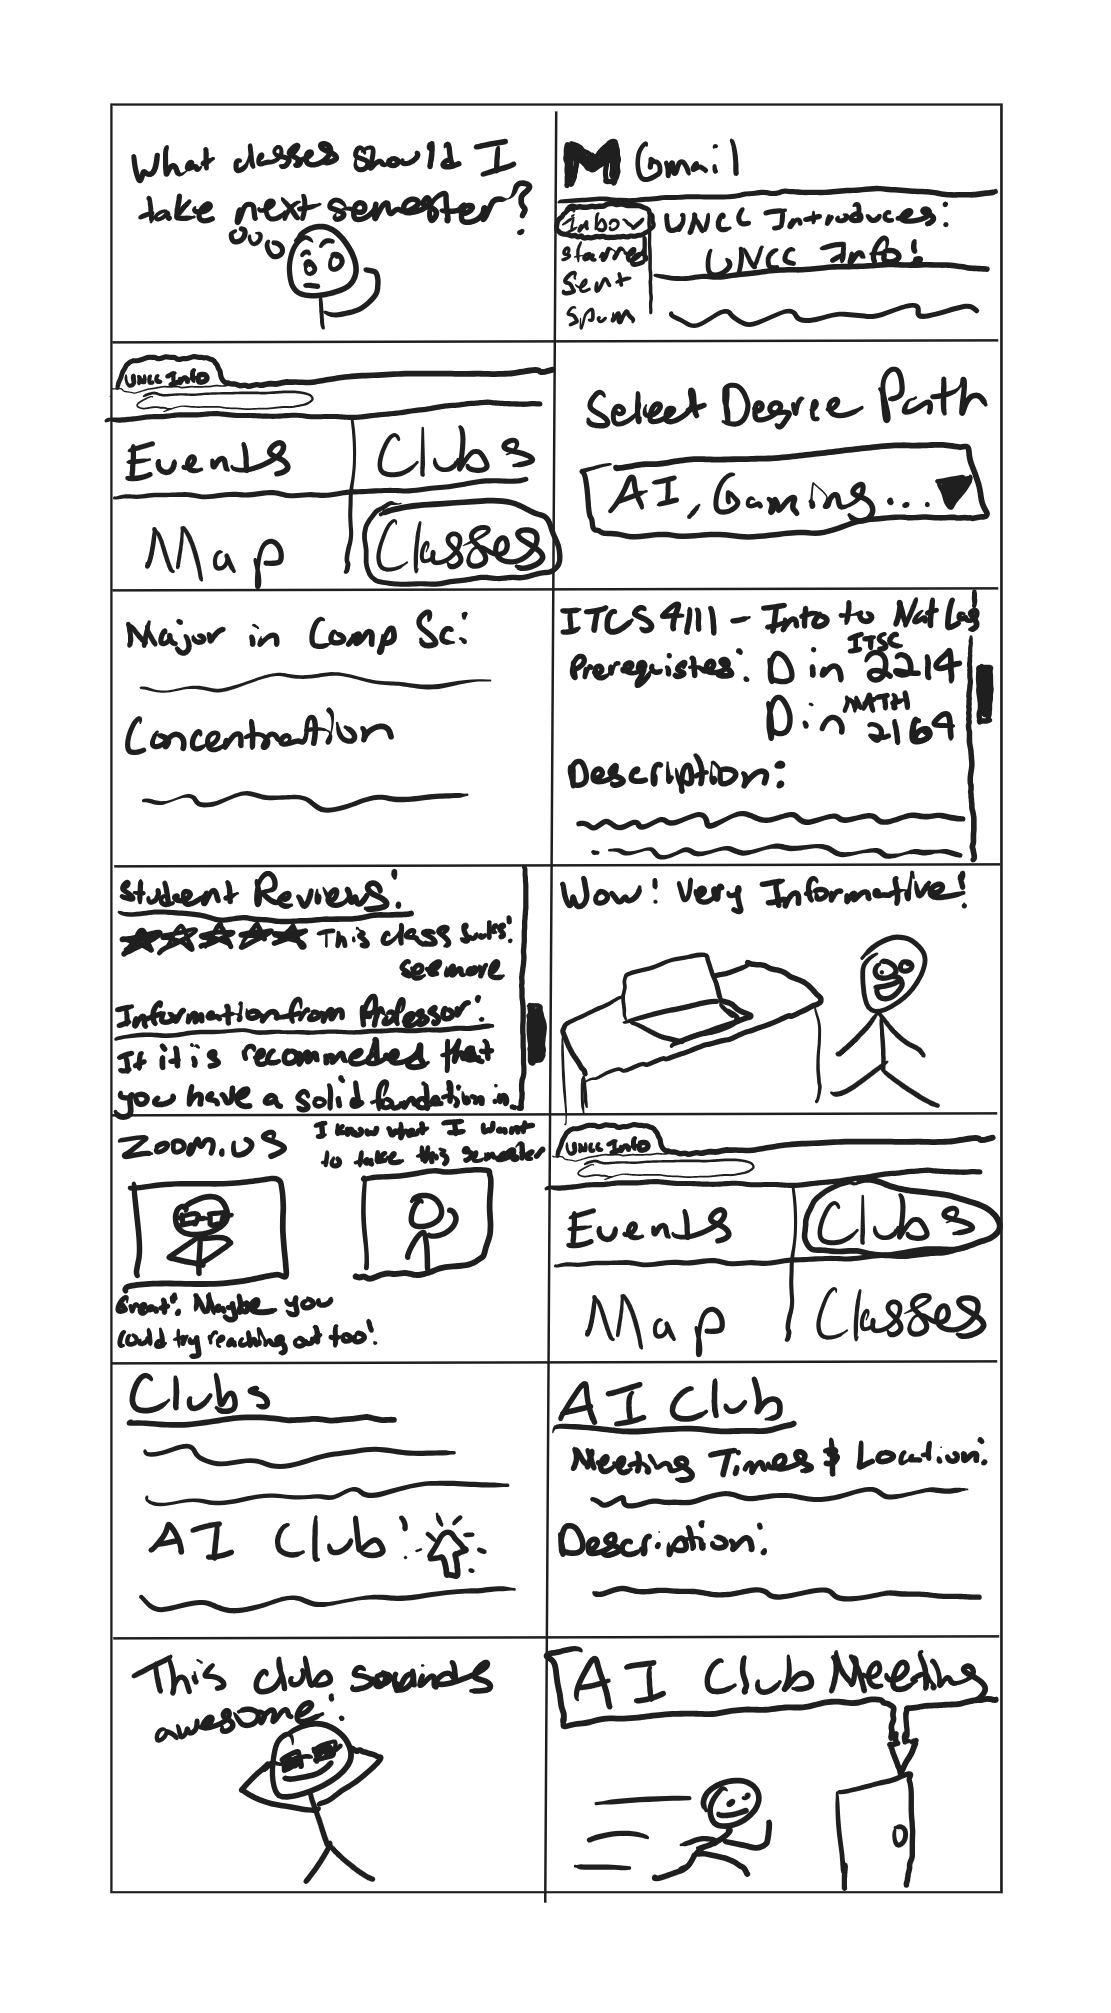 What classes should I
take next semester?
M Gmail
Inbox
UNCC Introduces:
UNCC Info!
starred
Sent
Spam
UNCC Info
Events
Clubs
Map
Classes
Select Degree Path
AI, Gaming...
Major in Comp Sc:
Concentration
ITCS 4111 - Into to Nat Lag
Prerequistes: D in ITSC 2214
D in MATH 2164
Description:
Student Reviews:
This class sucks!
see more
Information from Professor:
It it is recommeded that
you have a solid foundation in...
Wow! Very Informative!
Zoom.us
I know what I want
to take this semester
Great! Maybe you
could try reaching out too!
UNCC Info
Events
Clubs
Map
Classes
Clubs
AI Club!
AI Club
Meeting Times & Location:
Description:
This club sounds
awesome!
AI Club Meeting